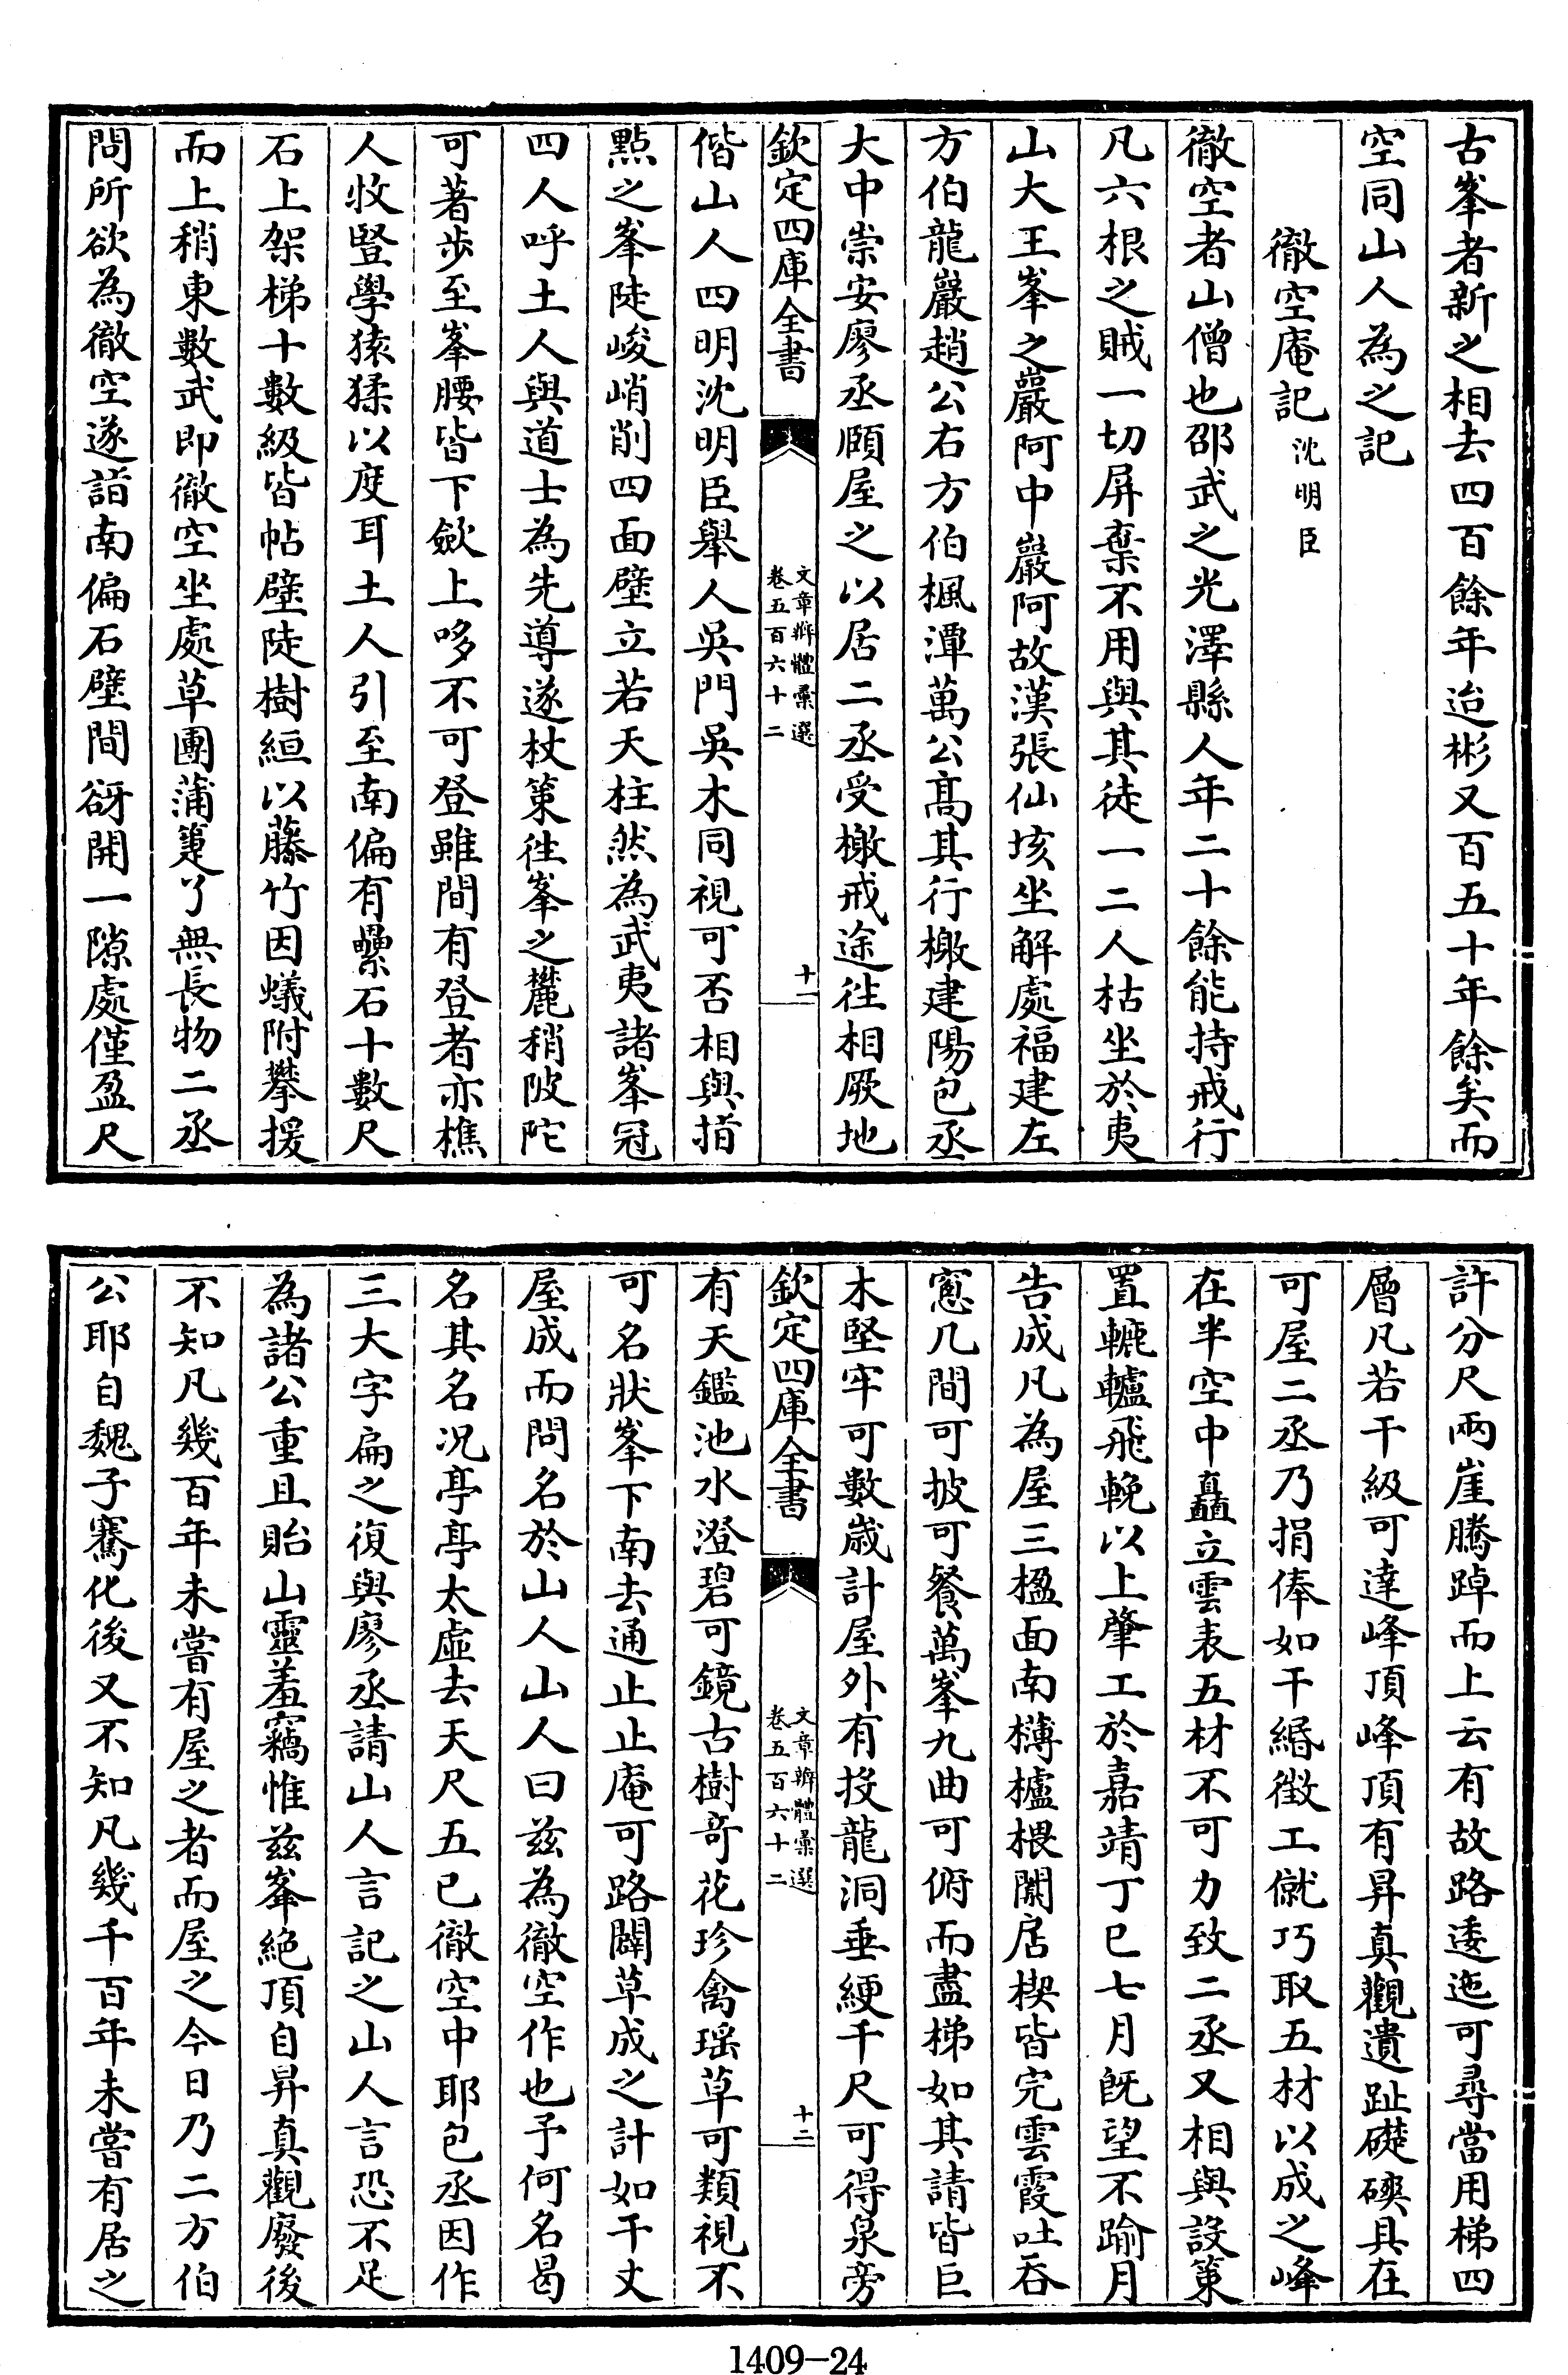 古峯者新之相去四百餘年迨彬又百五十年餘矣而
空同山人為之記
徹空庵記沈明臣
徹空者山僧也邵武之光澤縣人年二十餘能持戒行
凡六根之賊一切屏棄不用與其徒一二人枯坐於夷
山大王峯之巖阿中巖阿故漢張仙垓坐解處福建左
方伯龍巖趙公右方伯楓潭萬公髙其行檄建陽包丞
大中崇安廖丞頤屋之以居二丞受檄戒途往相厥地
欽定四庫全書
文章辨體彚選
卷五百六十二
十一
偕山人四明沈明臣舉人吳門吳木同視可否相與指
㸃之峯陡峻峭削四面壁立若天柱然為武夷諸峯冠
四人呼土人與道士為先導遂杖策往峯之麓稍陂陀
可著步至峯腰皆下歛上哆不可登雖間有登者亦樵
人牧豎學猿猱以度耳土人引至南偏有纍石十數尺
石上架梯十數級皆帖壁陡樹絙以藤竹因蟻附攀援
而上稍東數武即徹空坐處草團蒲箑了無長物二丞
問所欲為徹空遂詣南偏石壁間谺開一隙處僅盈尺
許分尺兩崖騰踔而上云有故路逶迤可尋當用梯四
層凡若干級可達峰頂峰頂有昇真觀遺趾礎礩具在
可屋二丞乃捐俸如干緡徴工僦巧取五材以成之峰
在半空中矗立雲表五材不可力致二丞又相與設策
置轆轤飛輓以上肇工於嘉靖丁巳七月旣望不踰月
告成凡為屋三楹面南欂櫨椳闑扂楔皆完雲霞吐吞
窻几間可披可餐萬峯九曲可俯而盡梯如其請皆巨
木堅牢可數歳計屋外有投龍洞垂綆千尺可得泉旁
欽定四庫全書
文章辨體彚選
卷五百六十二
十二
有天鑑池水澄碧可鏡古樹竒花珍禽瑶草可類視不
可名狀峯下南去通止止庵可路闢草成之計如干丈
屋成而問名於山人山人曰兹為徹空作也予何名曷
名其名况亭亭太虛去天尺五已徹空中耶包丞因作
三大字扁之復與廖丞請山人言記之山人言恐不足
為諸公重且貽山靈羞竊惟兹峯絶頂自昇真觀廢後
不知凡幾百年未嘗有屋之者而屋之今日乃二方伯
公耶自魏子騫化後又不知凡幾千百年未嘗有居之
1409-24